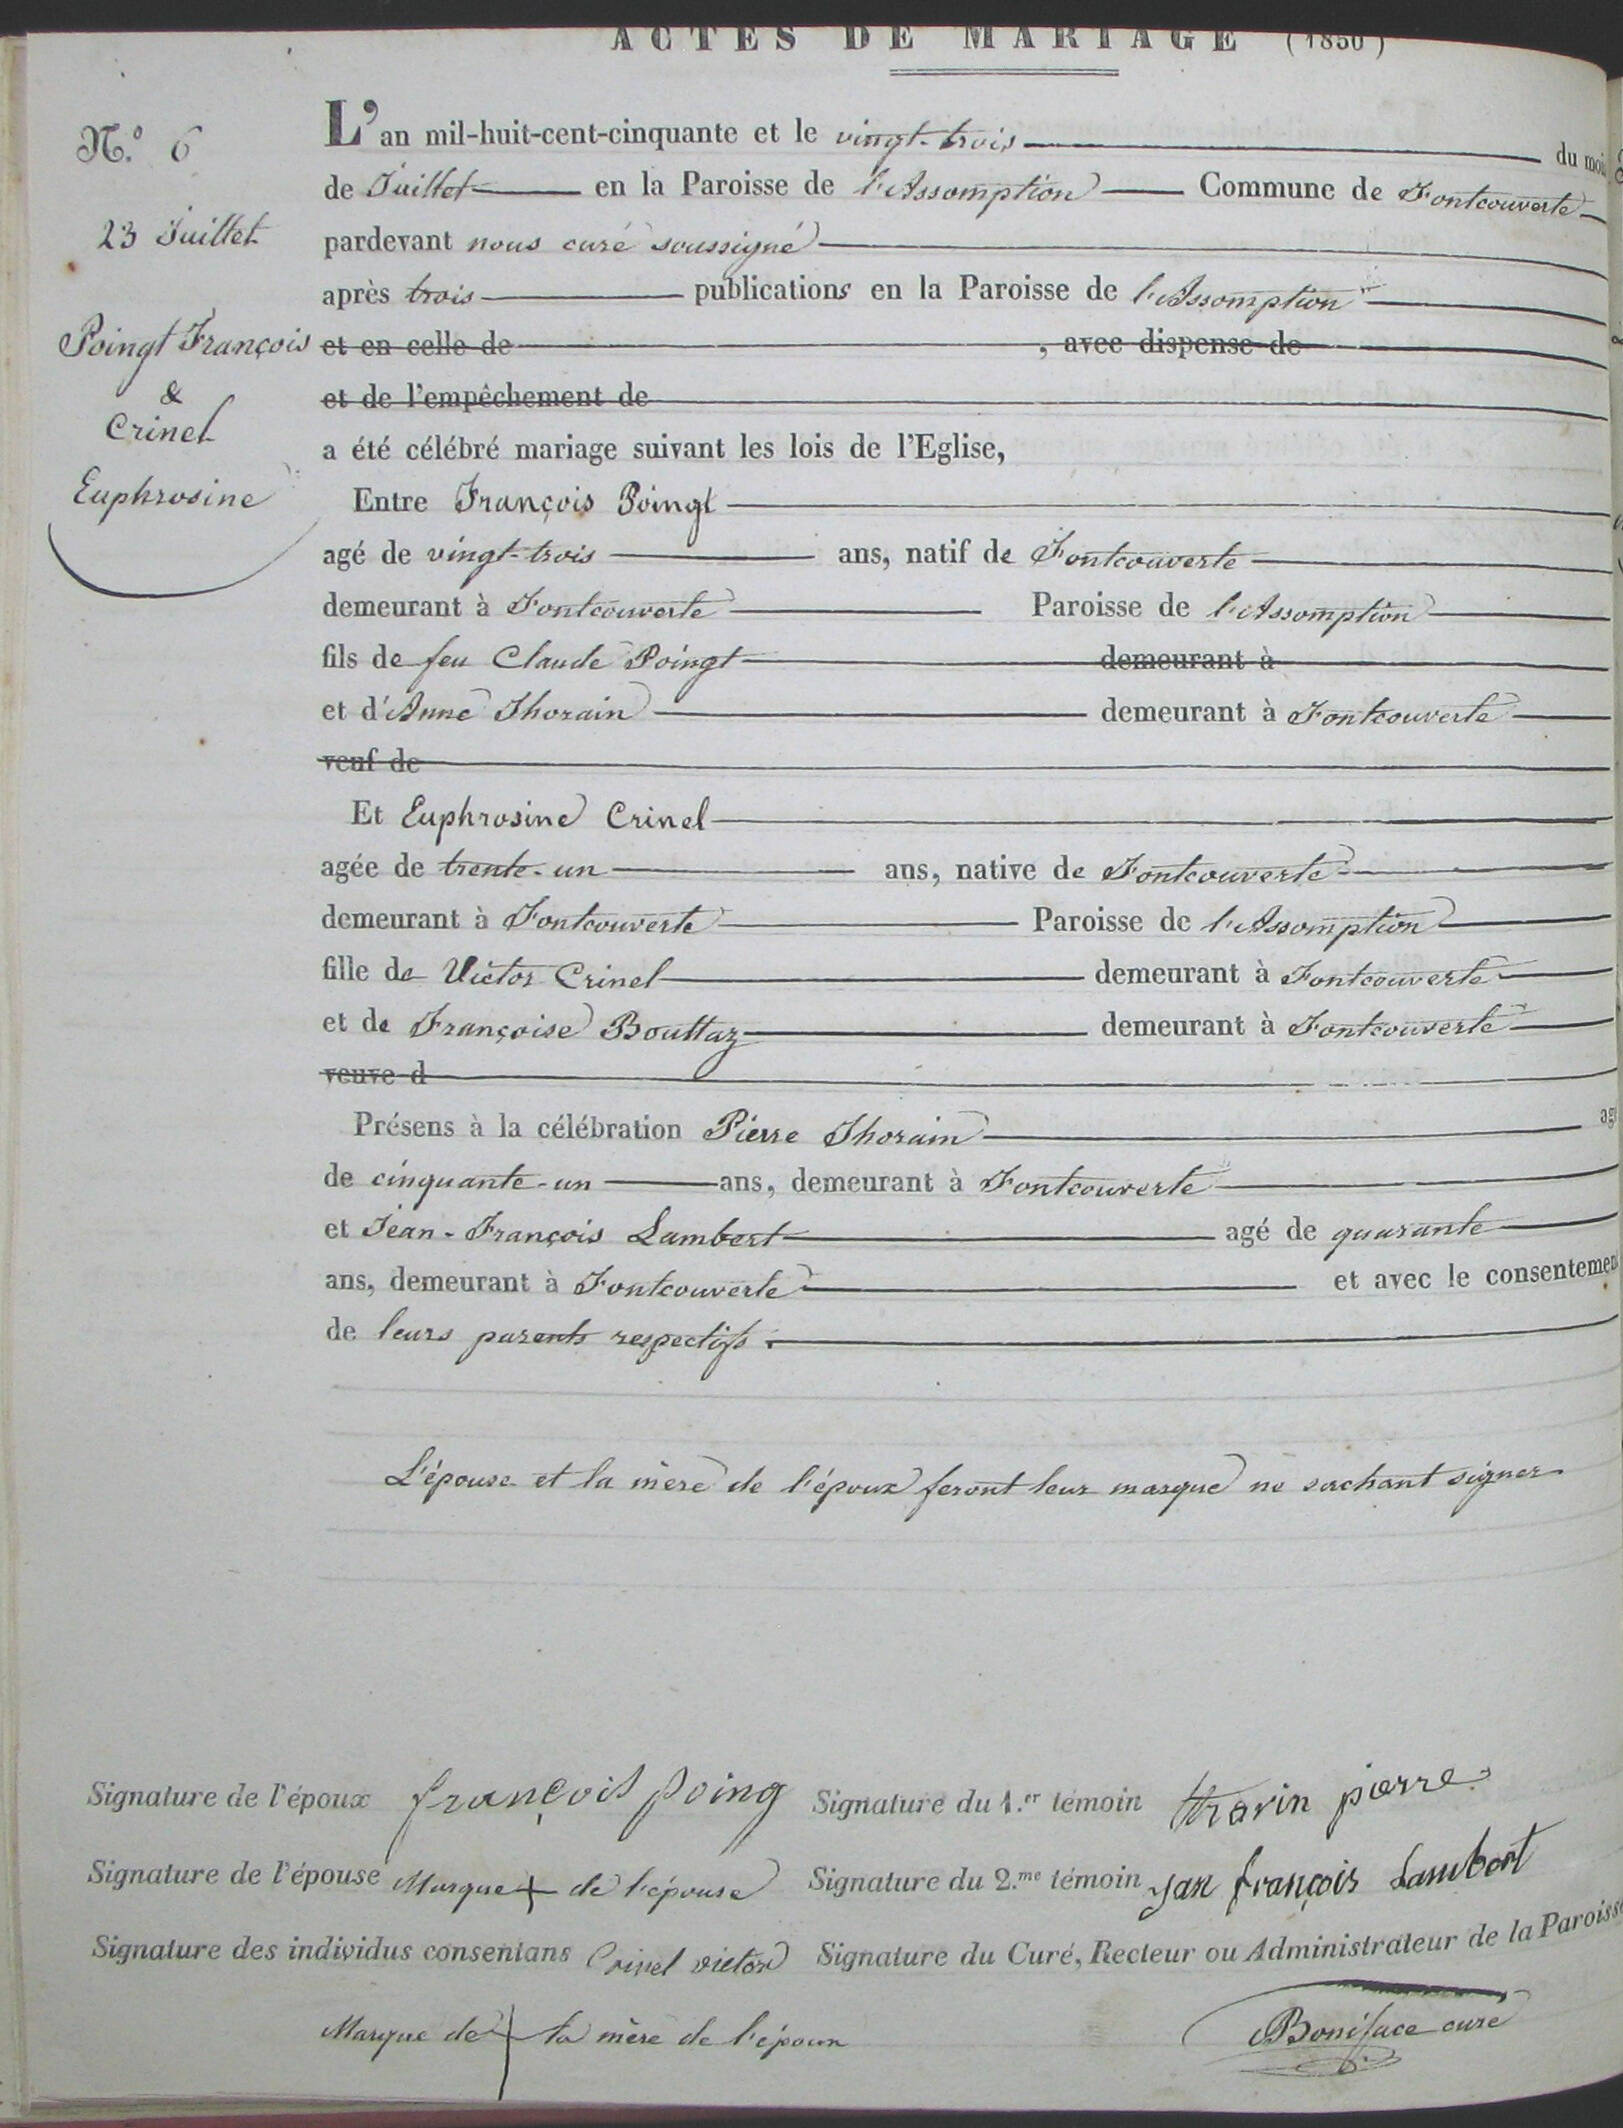 ACTES DE MARIAGE (1850)
N.º 6
23 Juillet
Poingt François
&
Crinel
Euphrosine
L'an mil-huit-cent-cinquante et le vingt-trois du moi
de Juillet en la Paroisse de l'Assomption Commune de Fontcouverte
pardevant nous curé soussigné
après trois publications en la Paroisse de l'Assomption
et en celle de , avec dispense de
et de l'empêchement de
a été célébré mariage suivant les lois de l'Eglise,
Entre François Poingt
agé de vingt-trois ans, natif de Fontcouverte
demeurant à Fontcouverte Paroisse de l'Assomption
fils de feu Claude Poingt demeurant à
et d'Anne Thorain demeurant à Fontcouverte
veuf de
Et Euphrosine Crinel
agée de trente-un ans, native de Fontcouverte
demeurant à Fontcouverte Paroisse de l'Assomption
fille de Victor Crinel demeurant à Fontcouverte
et de Françoise Bouttaz demeurant à Fontcouverte
veuve d
Présens à la célébration Pierre Thorain ag
de cinquante-un ans, demeurant à Fontcouverte
et Jean-François Lambert agé de quarante
ans, demeurant à Fontcouverte et avec le consentemen
de leurs parents respectifs.
L'épouse et la mère de l'époux feront leur marque ne sachant signer
Signature de l'époux françois poing Signature du 1.er témoin thorin pierre
Signature de l'épouse Marque + de l'épouse Signature du 2.me témoin jan françois Lambert
Signature des individus consentans Crinel victor Signature du Curé, Recteur ou Administrateur de la Paroisse
Marque de + la mère de l'époux Boniface curé